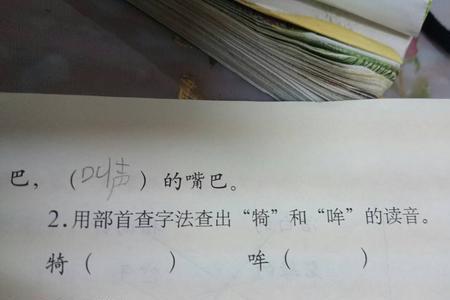 巴，（叫声）的嘴巴。
2.用部首查字法查出“犄”和“哞”的读音。
犄（ ） 哞（ ）